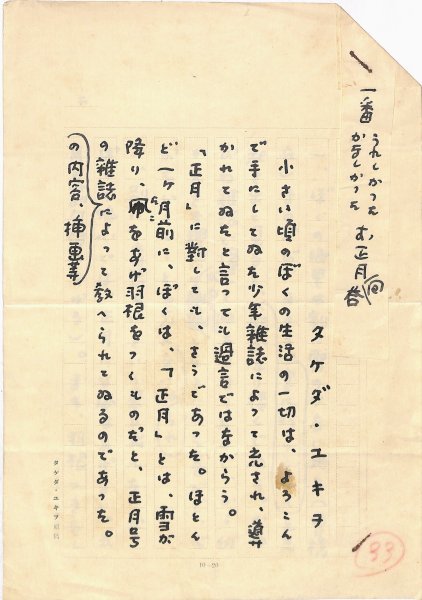 一番 うれしかった
かなしかった お正月 回答
タケダ・ユキヲ
小さい頃のぼくの生活の一切は、よろこん
で手にしてゐた少年雑誌によって充され、導
かれてゐたと言っても過言ではなからう。
「正月」に對しても、さうであった。ほとん
ど一ヶ月前に、ぼくは、「正月」とは、雪が
降り、凧をあげ羽根をつくものだと、正月号
の雑誌によって教へられてゐるのであった。
の内容、挿畫等
タケダ・ユキヲ用紙
10–20
33